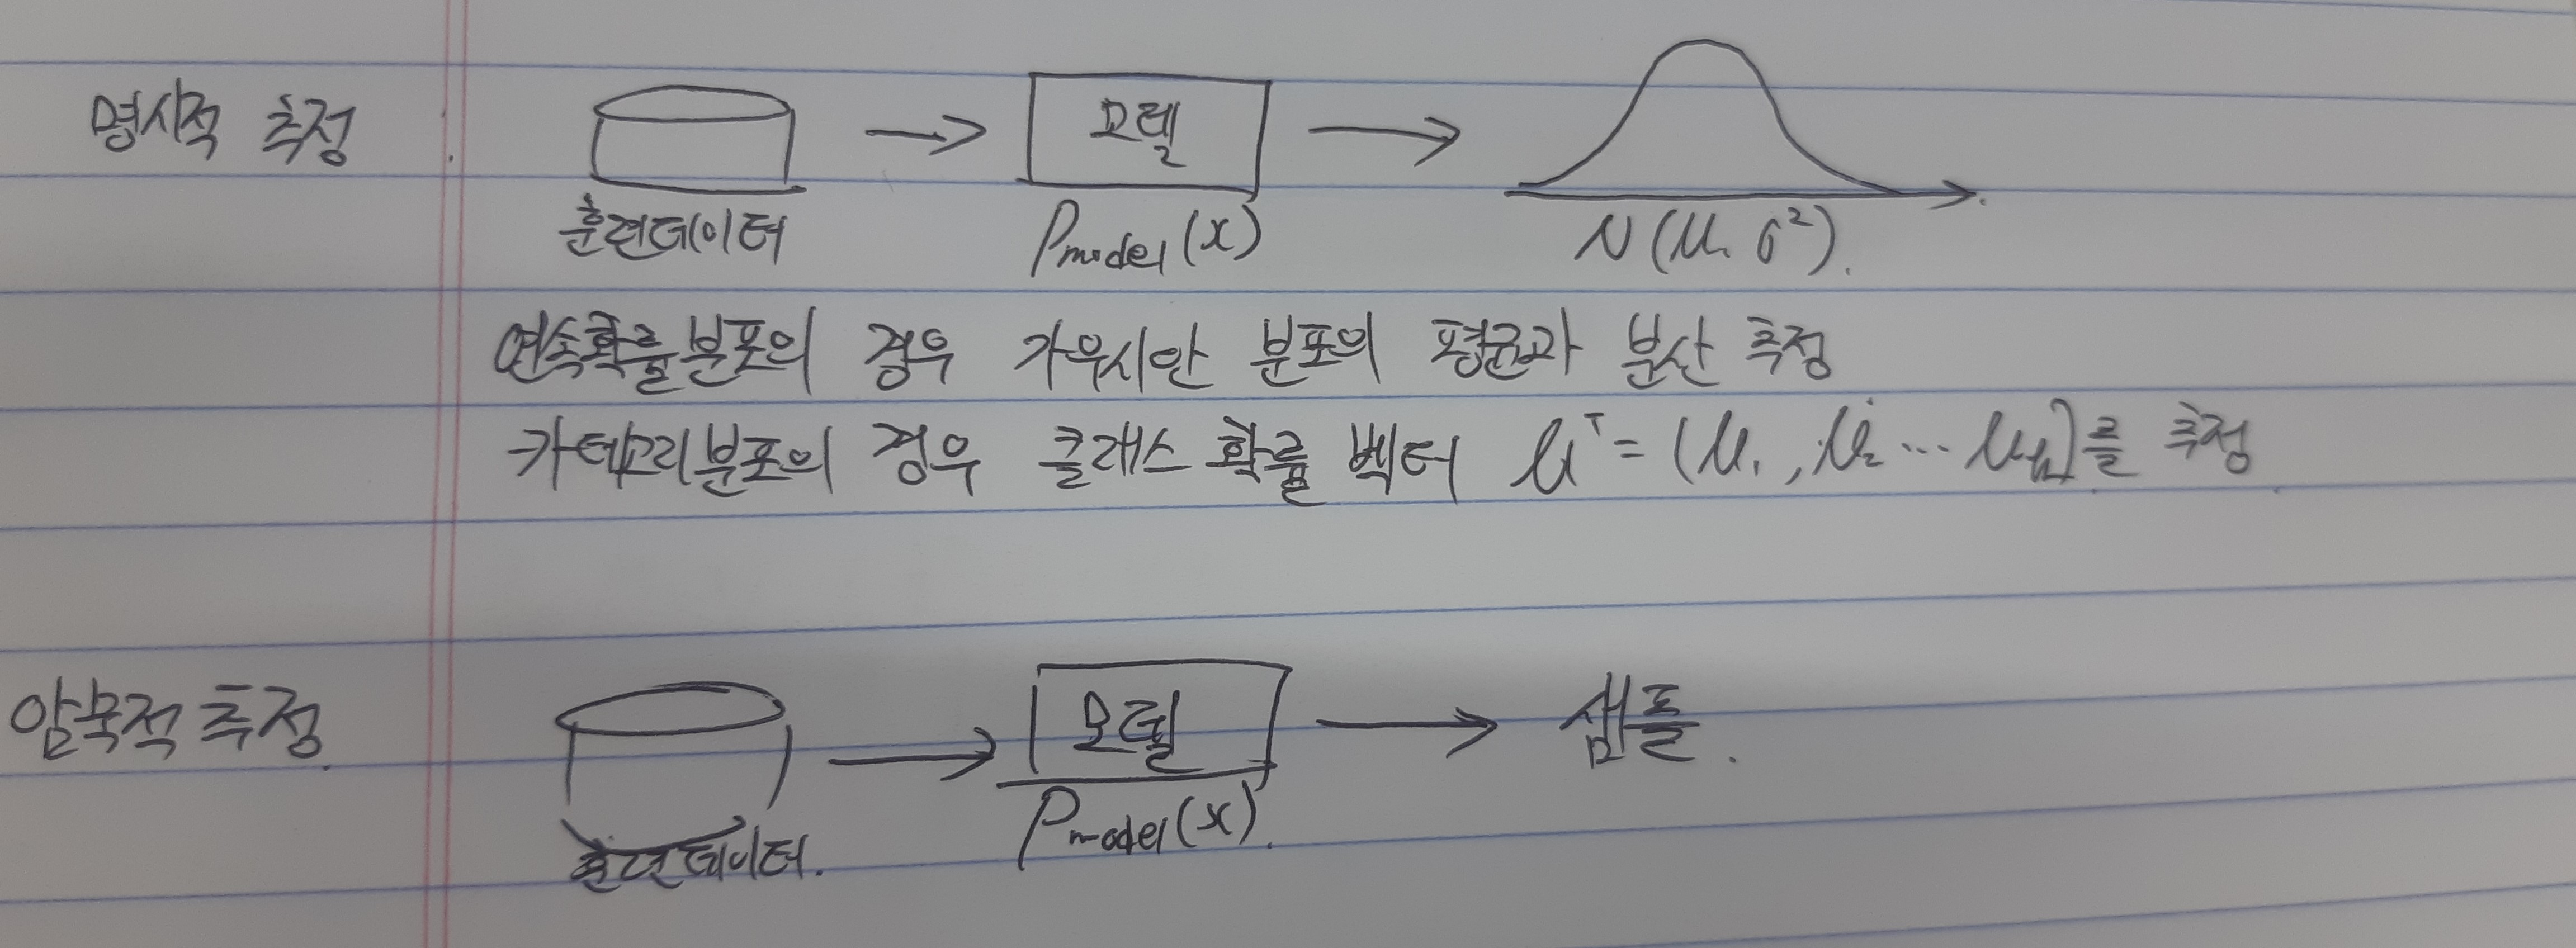 명시적 추정
모델
훈련데이터
Pmodel(x)
N(μ, σ²).
연속확률분포의 경우 가우시안 분포의 평균과 분산 추정
카테고리분포의 경우 클래스 확률 벡터 μᵀ = (μ₁, μ₂ ... μₖ)를 추정
암묵적 추정.
모델
샘플.
훈련데이터.
Pmodel(x).